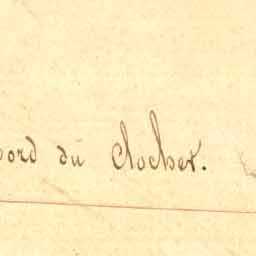 bord du clocher.